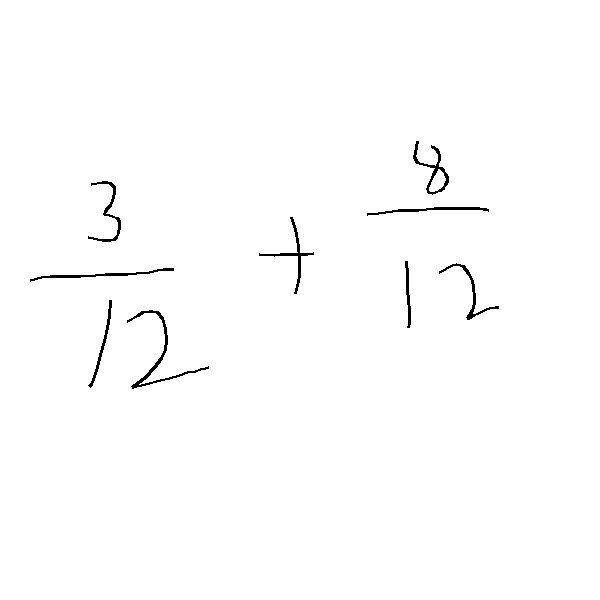 3/12 + 8/12